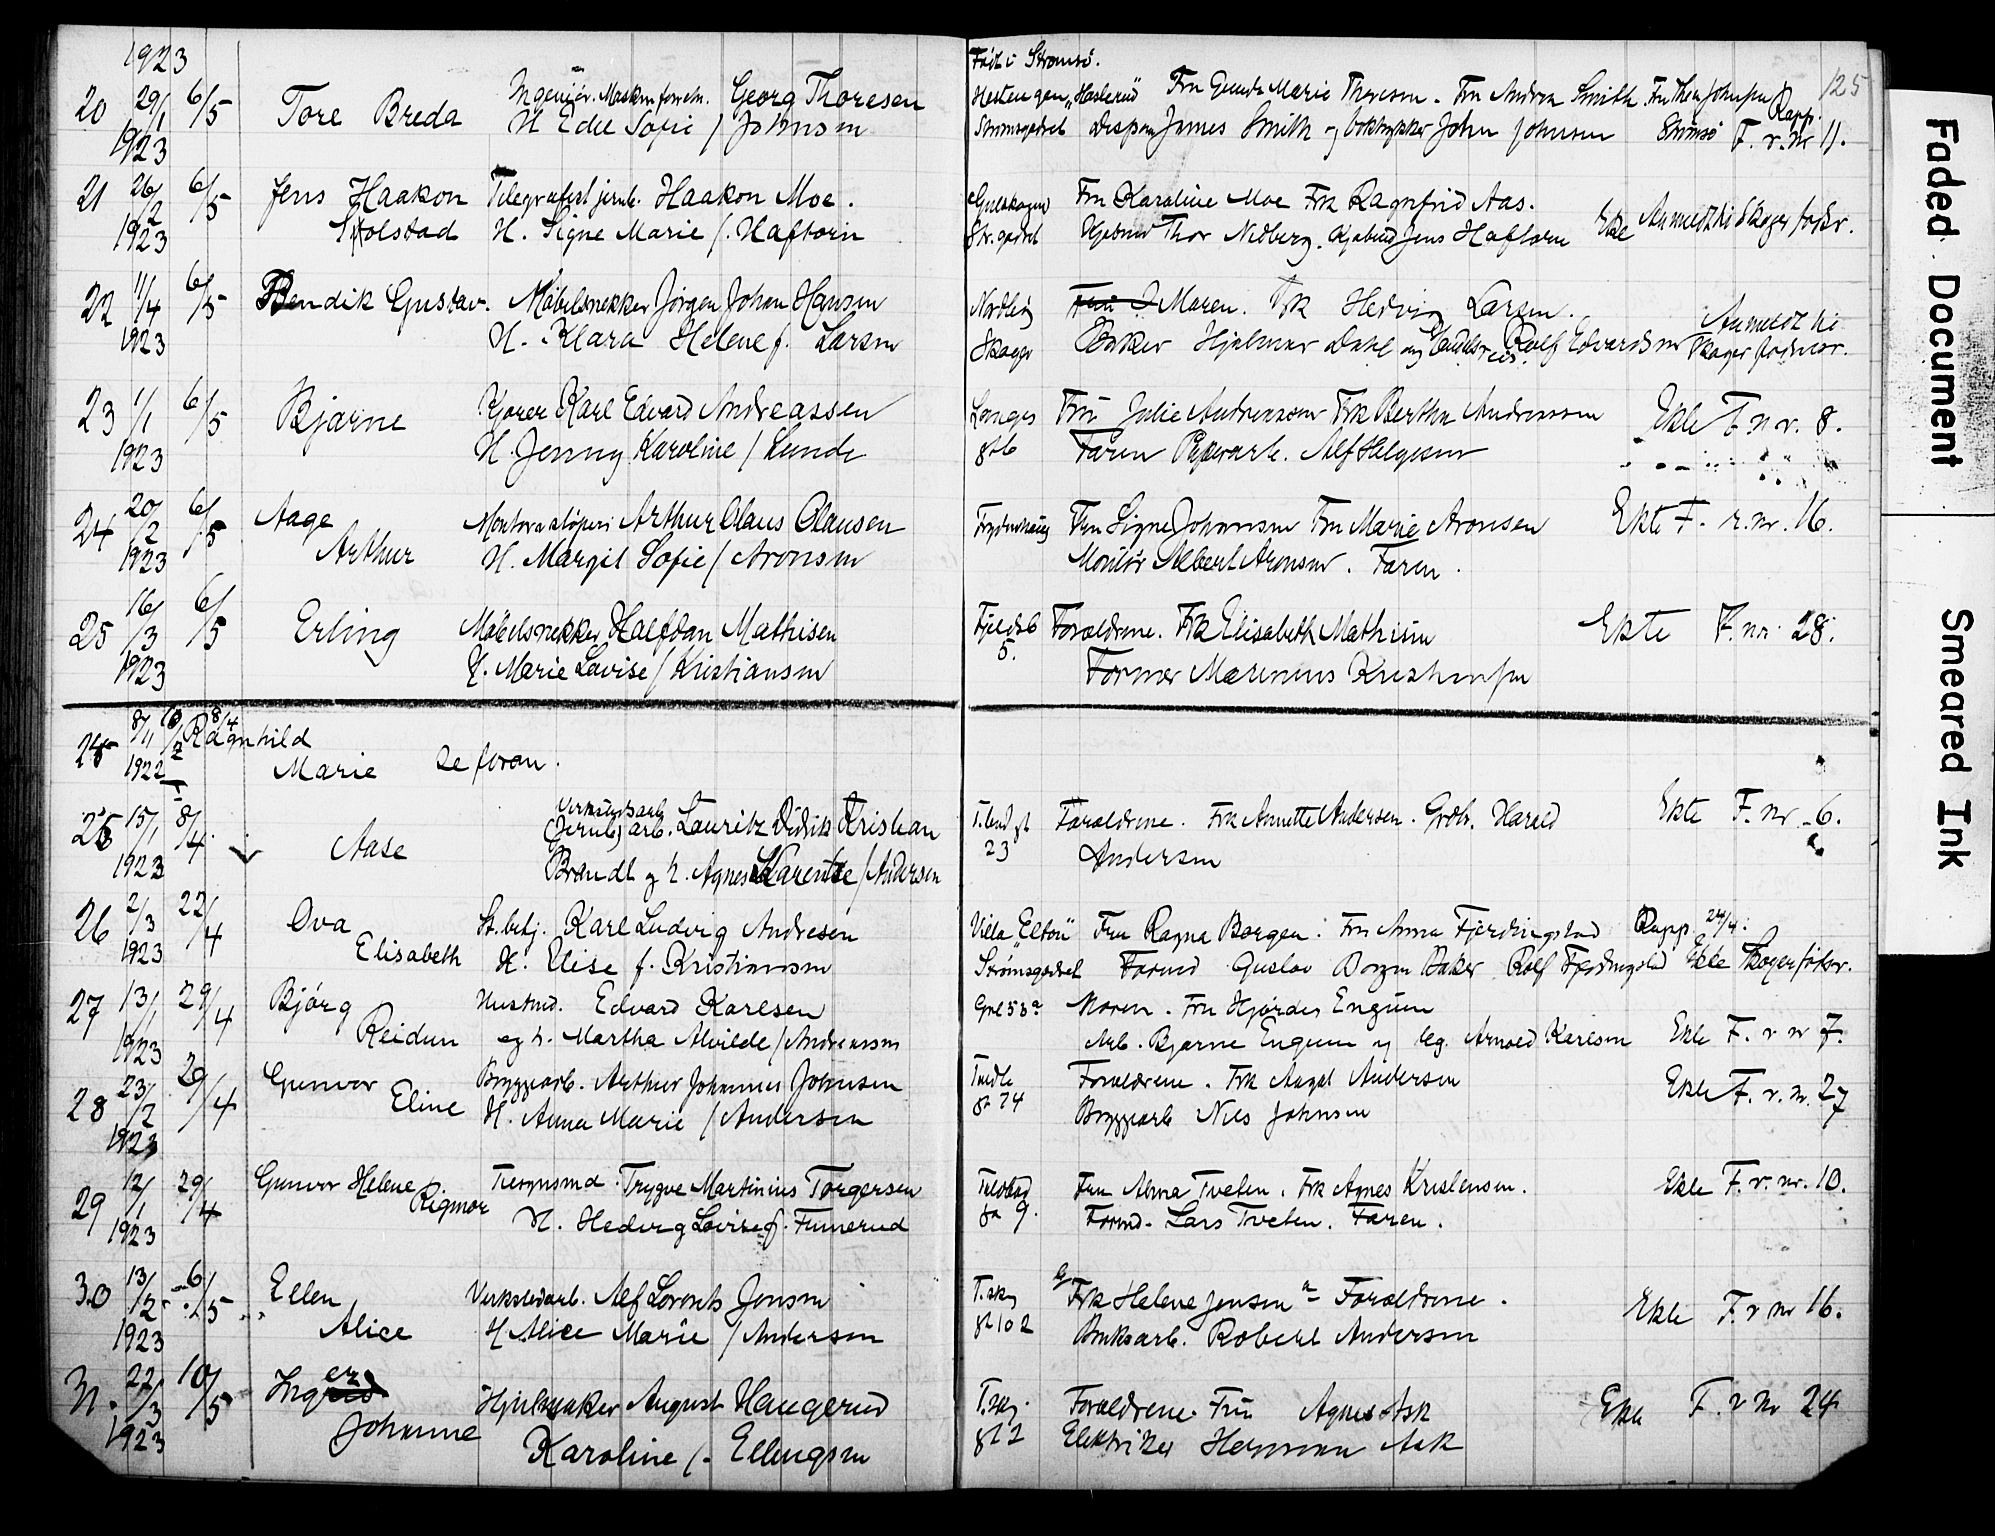 1923
Født i Strømsø.
125
20 29/1 6/5 Tore Breda Ingeniør. Maskinforretn. Georg Thoresen
1923 H Edle Sofie f Johnsen
Hestengen, Haslerud Fru Gunda Marie Thoresen. Fru Andrea Smith. Fru Thea Johnsen Rapp.
Strømsgodset James Smith og boktrykker John Johnsen Strømsø F. r. nr 11.
21 26/2 6/5 Jens Haakon Telegrafist jernb. Haakon Moe.
1923 Skolstad H. Signe Marie f. Haftorn
Gulskogen Fru Karoline Moe Frk Ragnfrid Aas.
Str.godset Thor Nedberg. Jens Haftorn Ekte Anmeldt til Skoger
22 11/4 6/5 Bendik Gustav. Møbelsnekker Jörgen Johan Hansen
1923 H. Klara Helene f. Larsen
Nordby Maren. Frk Hedvig Larsen. Anmeldt til
Skoger Baker Hjalmar Dahl og Rolf Edvardsen Skoger
23 1/1 6/5 Bjarne Kjører Karl Edvard Andreassen
1923 H. Jenny Karoline f Lunde
Langes Fru Julie Andreassen Frk Bertha Andreassen Ekte F n r. 8.
gt 6 Faren Papirarb. Alf Helgesen
24 20/2 6/5 Aage Arthur Olaus Olausen
1923 Arthur H. Margit Sofie f Aronsen
Frydenhaug Fru Signe Johansen Fru Marie Aronsen Ekte F. r. nr. 16.
Montør Albert Aronsen. Faren.
25 16/3 6/5 Erling Møbelsnekker Halfdan Mathisen
1923 H. Marie Lovise f Kristiansen
Fjeldsb Foraldrene. Frk Elisabeth Mathisen Ekte F. nr. 28.
5. Former Marinius Kristiansen
25 8/11 8/4 Ragnhild
1922 Marie Se foran.
25 15/1 8/4 Verkstedsarb
(Jernb) arb. Lauritz Didrik Kristian
1923 Aase Brandt og h. Agnes Karentse f Andersen
T.land gt Foraldrene. Frk Annette Andersen. Grdbr. Harald Ekte F. nr. 6.
23 Andersen
26 2/3 22/4 Ova St.betj. Karl Ludvig Andresen
1923 Elisabeth H. Elise f. Kristiansen
Villa "Elton" Fru Ragna Borgen. Fru Anna Fjerdingstad Rapp. 24/4.
Strømsgodset Formd Gustav Borgen Baker Rolf Fjerdingstad Ekte
27 13/1 29/4 Bjørg Edvard Karlsen
1923 Reidun og h. Martha Alvilde f Andreassen
Grl 58a Moren. Fru Hjørdis Engum
Arb. Bjarne Engum og Arnold Karlsen Ekte F. r nr 7.
28 23/2 29/4 Gunvor Bryggearb. Arthur Johannes Johnsen
1923 Eline H. Anna Marie f Andersen
Tordb Foraldrene. Frk Augst Andersen Ekte F. r. nr. 27
gt 74 Bryggearb Nils Johnsen
29 12/1 29/4 Gunvor Helene Trygve Martinius Torgersen
1923 Rigmor H. Hedvig Lovise f. Finnerud
Fru Alma Tveten. Frk Agnes Kristensen. Ekte F. r. nr. 10.
gt 9. Formd. Lars Tveten. Faren.
30 13/2 6/5 Ellen Verkstedarb. Alf Lorents Jensen
1923 Alice H Alice Marie f Andersen
T.skg Frk Helene Jensen Foraldrene. Ekte F. r nr 16.
gt 102 Bruksarb. Robert Andersen
31. 22/3 10/5 Inger Hjulmaker August Haugerud
1923 Johanne Karoline f. Ellingsen
T.skg. Foraldrene. Fru Agnes Ask Ekte F. r nr 24
gt 2 Elektriker Herman Ask
Faded Document
Smeared Ink